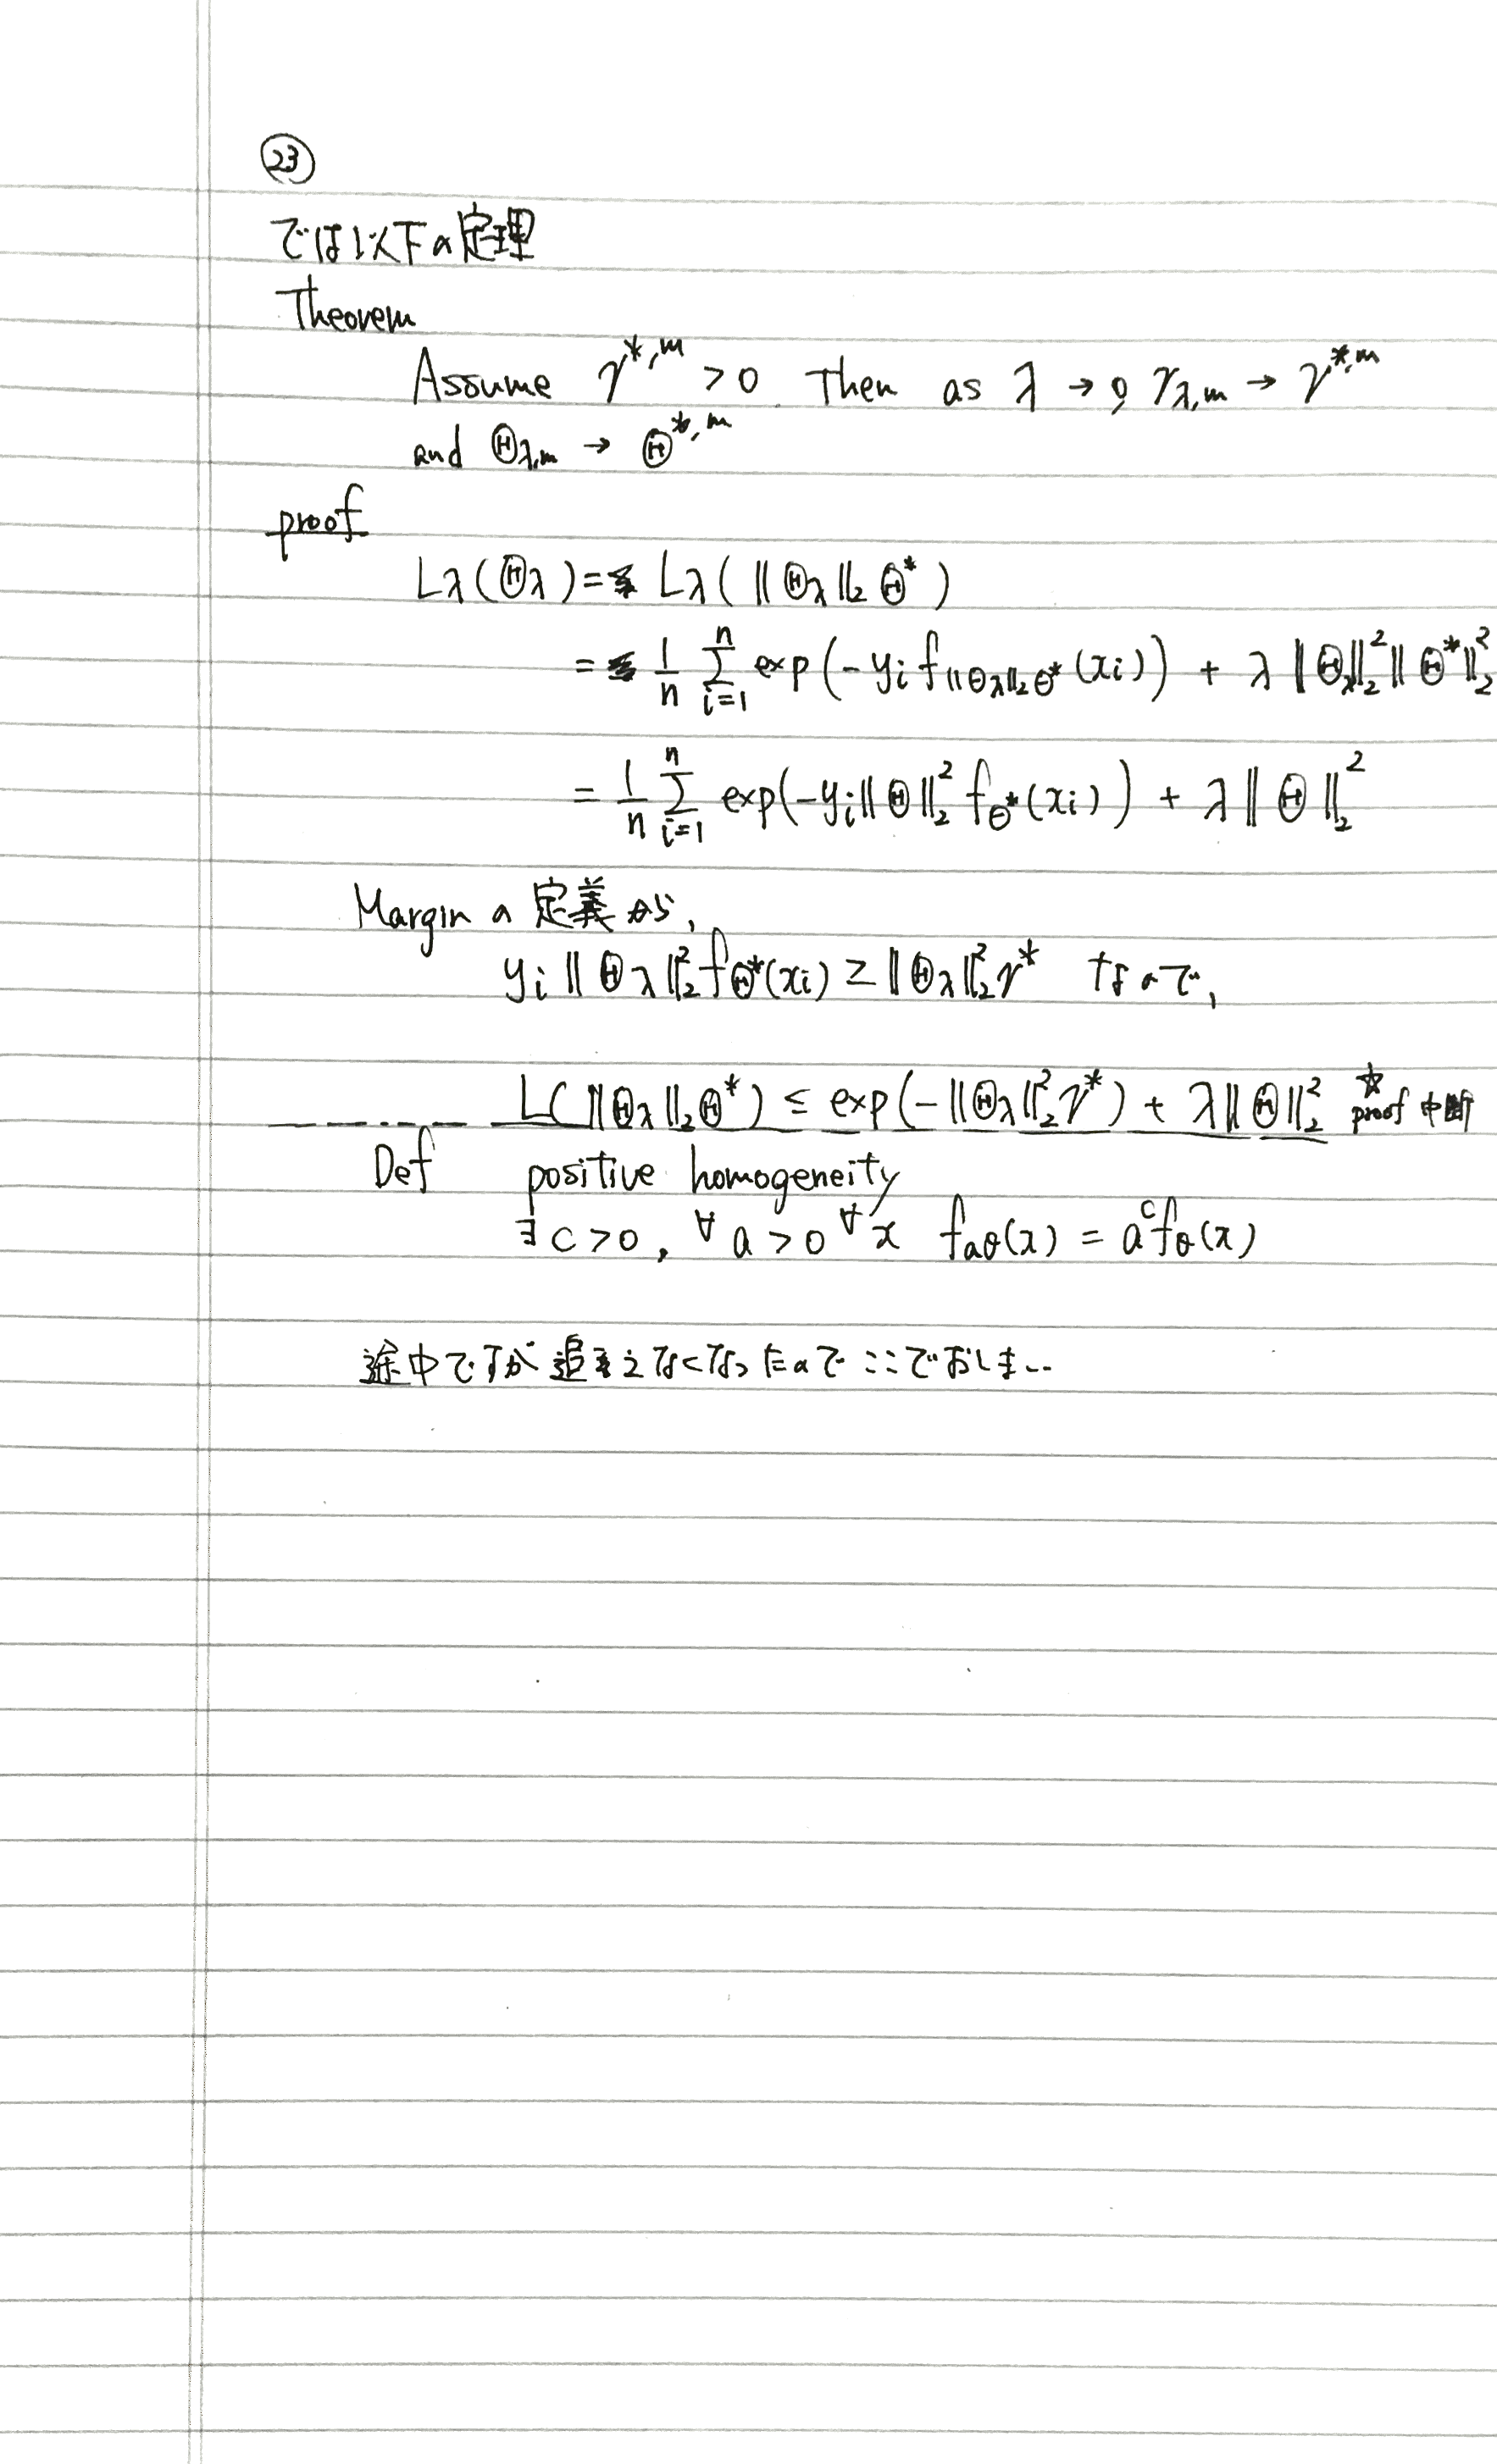 ㉓
では以下の定理
Theorem
Assume γ^{*,m} > 0. Then as λ → 0, γ_{λ,m} → γ^{*,m}
and Θ_{λ,m} → Θ^{*,m}
proof
Lλ(Θλ) = Lλ(‖Θλ‖₂ Θ*)
= 1/n Σ_{i=1}^{n} exp(-y_i f_{‖Θλ‖₂Θ*}(x_i)) + λ‖Θλ‖₂²‖Θ*‖₂²
= 1/n Σ_{i=1}^{n} exp(-y_i‖Θ‖₂² f_{Θ*}(x_i)) + λ‖Θ‖₂²
Marginの定義から,
y_i‖Θλ‖₂² f_{Θ*}(x_i) ≥ ‖Θλ‖₂² γ* なので,
L(‖Θλ‖₂Θ*) ≤ exp(-‖Θλ‖₂² γ*) + λ‖Θ‖₂² ☆ proof 中断
Def positive homogeneity
∃c > 0, ∀a > 0 ∀x f_{aθ}(x) = a^c f_θ(x)
途中ですが追えなくなったのでここでおしまい